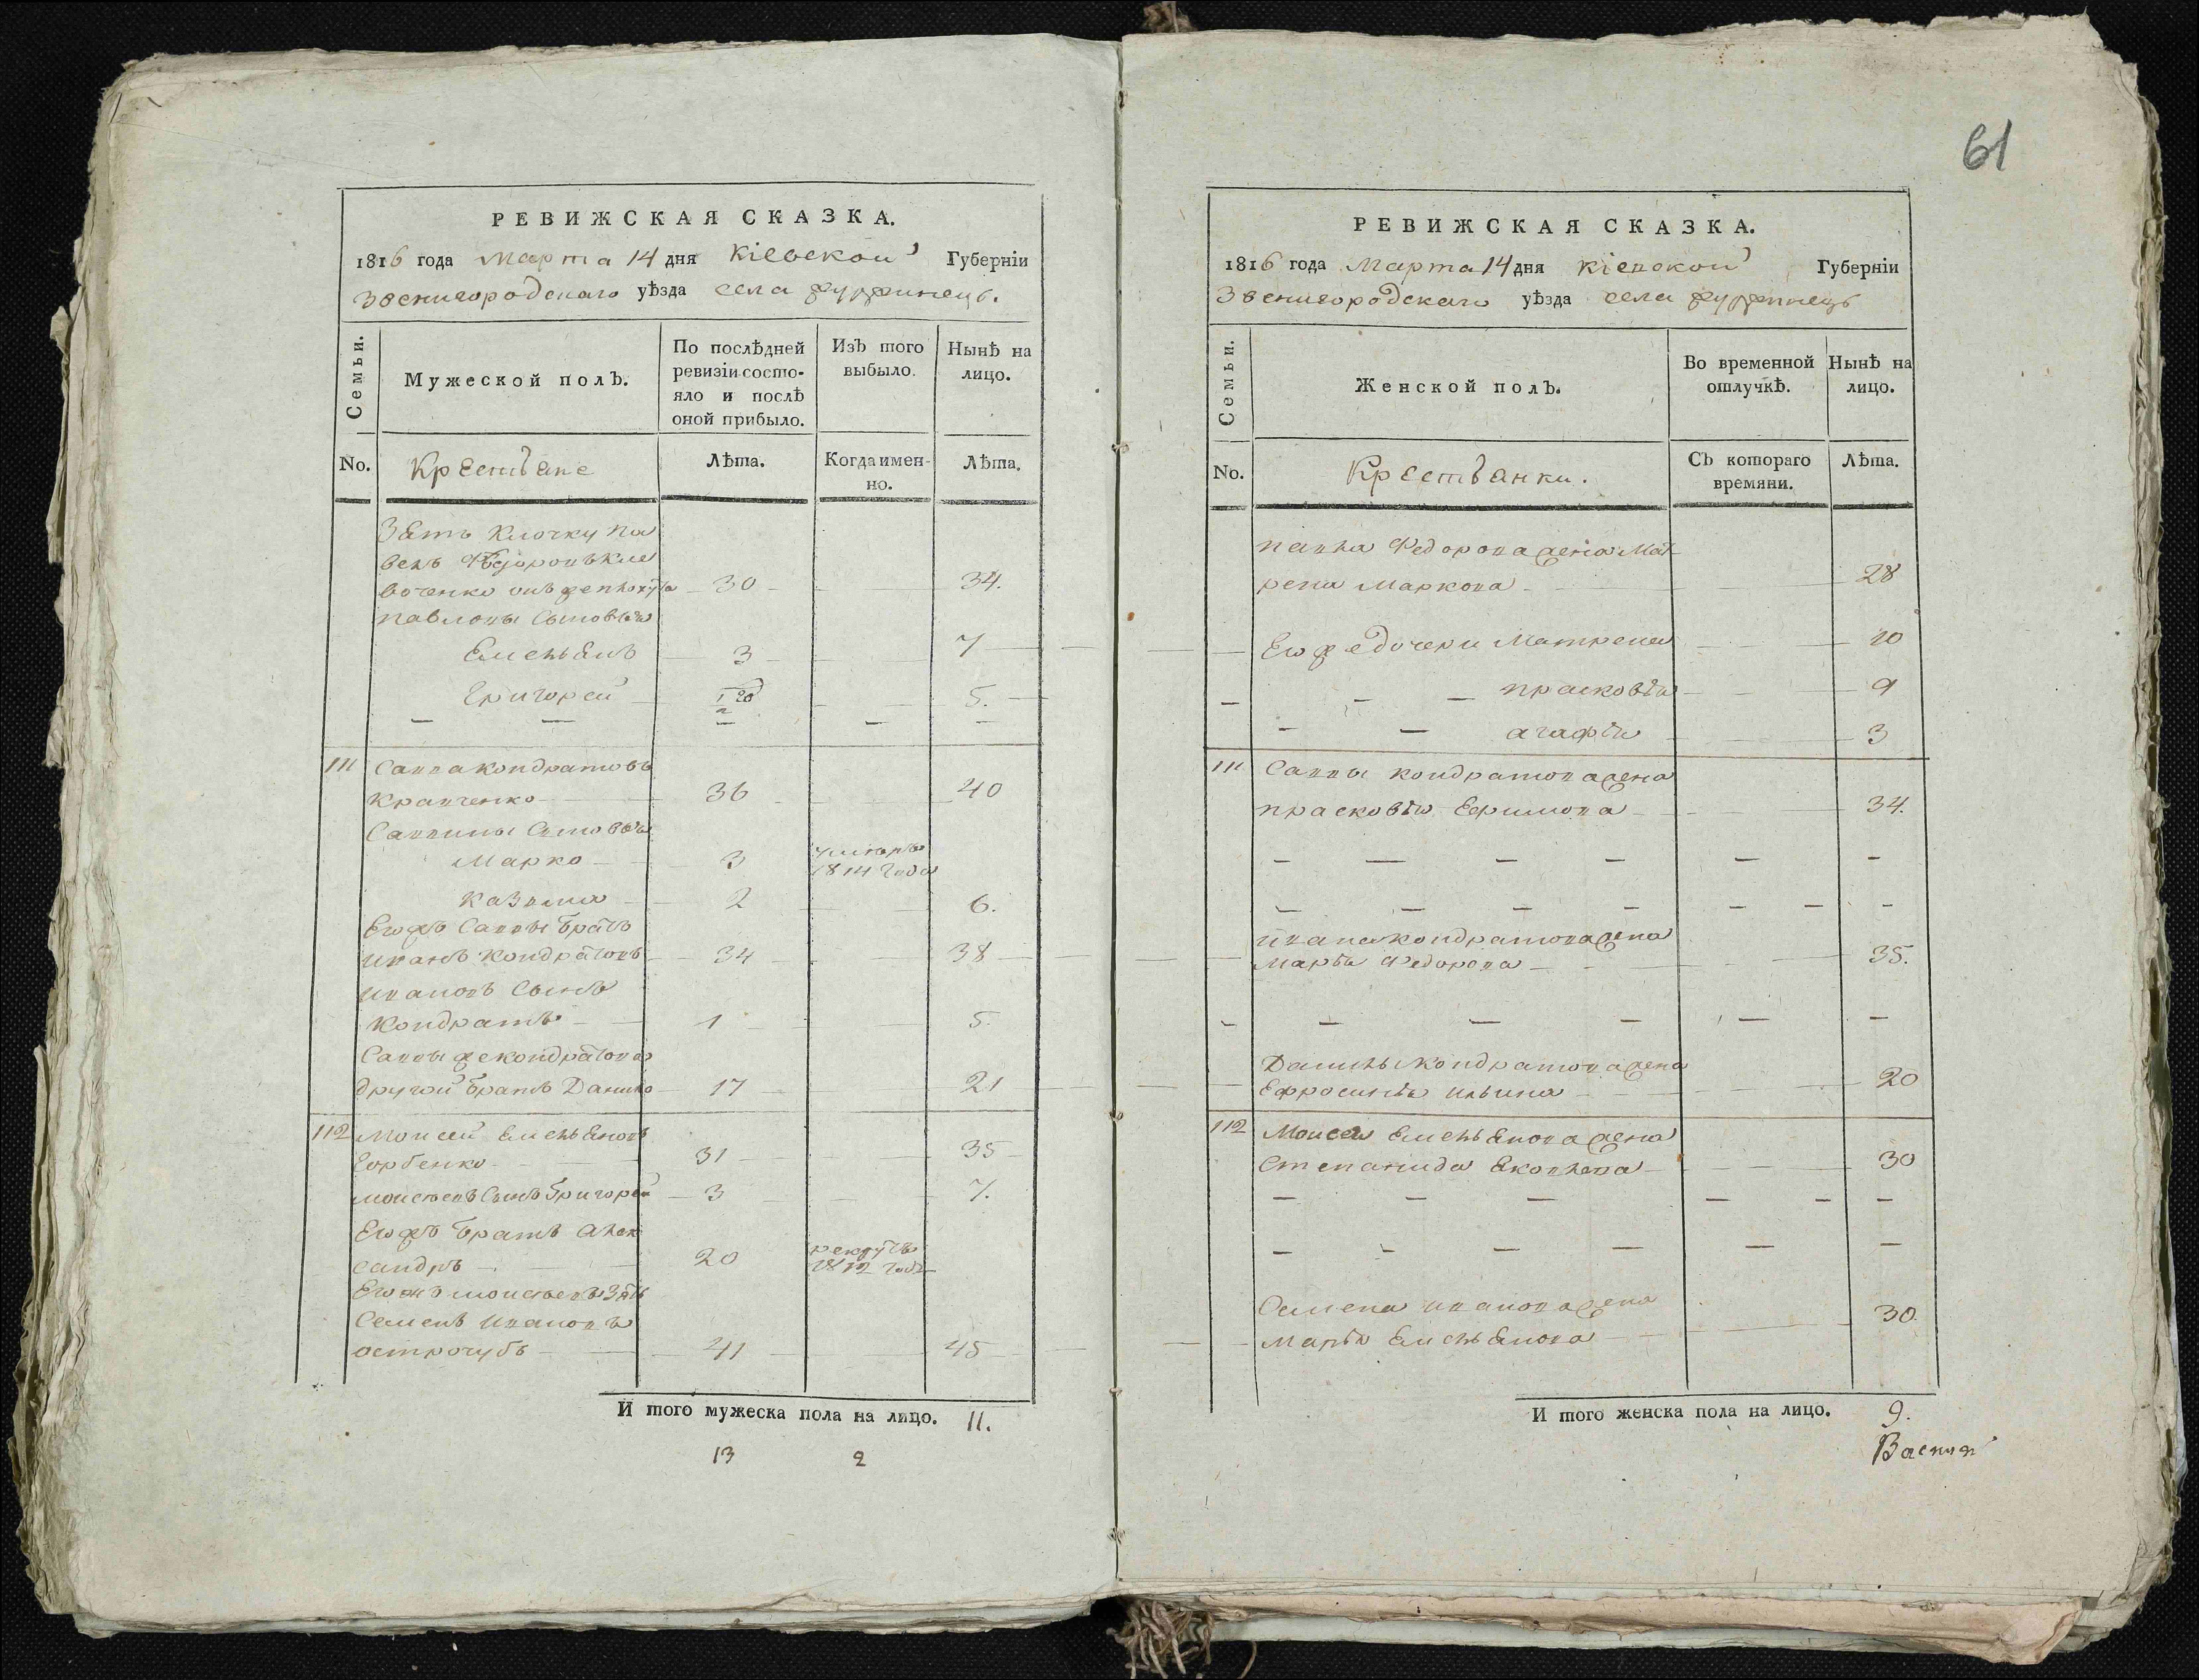 61
РЕВИЖСКАЯ СКАЗКА.
1816 года Марта 14 дня Кіевской Губерніи
Звенигородскаго уѣзда села
Семьи.
Мужеской полъ.
По послѣдней ревизіи состо-
яло и послѣ
оной прибыло.
Изъ того
выбыло.
Нынѣ на
лицо.
No.
Крестьяне
Лѣта.
Когда имен-
но.
Лѣта.
Зять Клочку Па
30 34.
Павловы Сыновья
Емельянъ 3 7
Григорей 5.
111 Савва Кондратовъ
Кравченко 36 40
Саввины Сыновья
Марко 3 умеръ
1814 года
Казьма 2 6.
Егожъ Саввы братъ
Иванъ Кондратовъ 34 38
Ивановъ Сынъ
Кондратъ 1 5.
Саввы же Кондратова
другой братъ Данило 17 21
112 Моисей Емельяновъ
Горбенко 31 35
Моисеевъ Сынъ Григорей 3 7.
Егожъ братъ Алек
сандръ 20 рекрутъ
1812 года
Егожъ Моисеевъ Зять
Семенъ Ивановъ
Острочубъ 41 45
И того мужеска пола на лицо. 11.
13 2
РЕВИЖСКАЯ СКАЗКА.
1816 года Марта 14 дня Кіевской Губерніи
Звенигородскаго уѣзда села
Семьи.
Женской полъ.
Во временной
отлучкѣ.
Нынѣ на
лицо.
No.
Крестьянки.
Съ котораго
времяни.
Лѣта.
Павла Федорова жена Мат
рена Маркова 28
Егоже дочери Матрена 10
Прасковія 9
Агафія 3
111 Саввы Кондратова жена
Прасковія Ефимова 34.
Ивана Кондратова жена
Марія Федорова 35.
Данилы Кондратова жена
Ефросинія Ильина 20
112 Моисея Емельянова жена
Степанида Яковлева 30
Семена Иванова жена
Марія Емельянова 30.
И того женска пола на лицо. 9.